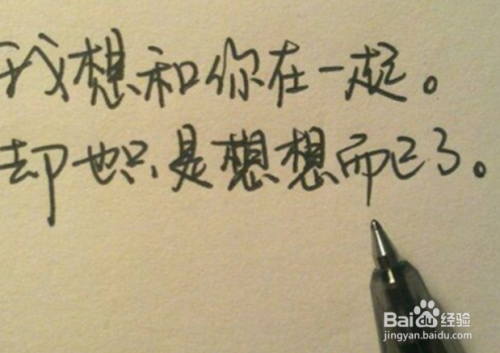 我想和你在一起。
却也只是想想而已了。
Baidu经验
jingyan.baidu.com